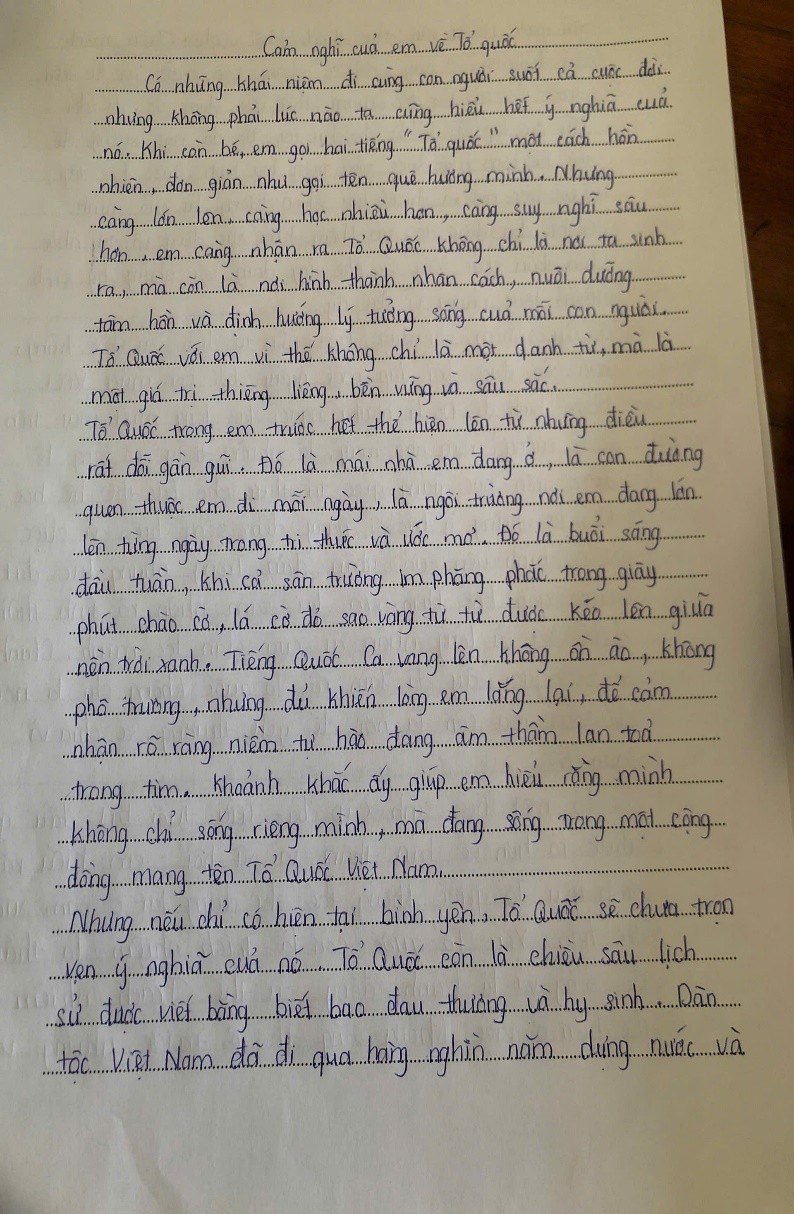 Cảm nghĩ của em về Tổ quốc
Có những khái niệm đi cùng con người suốt cả cuộc đời
nhưng không phải lúc nào ta cũng hiểu hết ý nghĩa của
nó. Khi còn bé, em gọi hai tiếng "Tổ quốc" một cách hồn
nhiên, đơn giản như gọi tên quê hương mình. Nhưng
càng lớn lên, càng học nhiều hơn, càng suy nghĩ sâu
hơn, em càng nhận ra Tổ Quốc không chỉ là nơi ta sinh
ra, mà còn là nơi hình thành nhân cách, nuôi dưỡng
tâm hồn và định hướng lý tưởng sống của mỗi con người.
Tổ Quốc với em vì thế không chỉ là một danh từ, mà là
một giá trị thiêng liêng, bền vững và sâu sắc.
Tổ Quốc trong em trước hết thể hiện lên từ những điều
rất đỗi gần gũi. Đó là mái nhà em đang ở, là con đường
quen thuộc em đi mỗi ngày, là ngôi trường nơi em đang lớn
lên từng ngày trong tri thức và ước mơ. Đó là buổi sáng
đầu tuần, khi cả sân trường im phăng phắc trong giây
phút chào cờ, lá cờ đỏ sao vàng từ từ được kéo lên giữa
nền trời xanh. Tiếng Quốc Ca vang lên không ồn ào, không
phô trương, nhưng đủ khiến lòng em lắng lại, để cảm
nhận rõ ràng niềm tự hào đang âm thầm lan toả
trong tim. Khoảnh khắc ấy giúp em hiểu rằng mình
không chỉ sống riêng mình, mà đang sống trong một cộng
đồng mang tên Tổ Quốc Việt Nam.
Nhưng nếu chỉ có hiện tại bình yên, Tổ Quốc sẽ chưa trọn
vẹn ý nghĩa của nó. Tổ Quốc còn là chiều sâu lịch
sử được viết bằng biết bao đau thương và hy sinh. Dân
tộc Việt Nam đã đi qua hàng nghìn năm dựng nước và